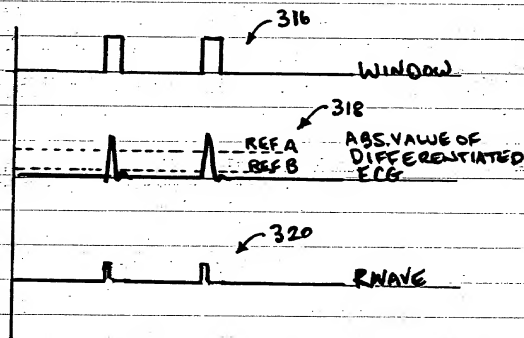 316
WINDOW
318
REF A
ABS. VALUE OF
DIFFERENTIATED
REF B
ECG
320
RWAVE